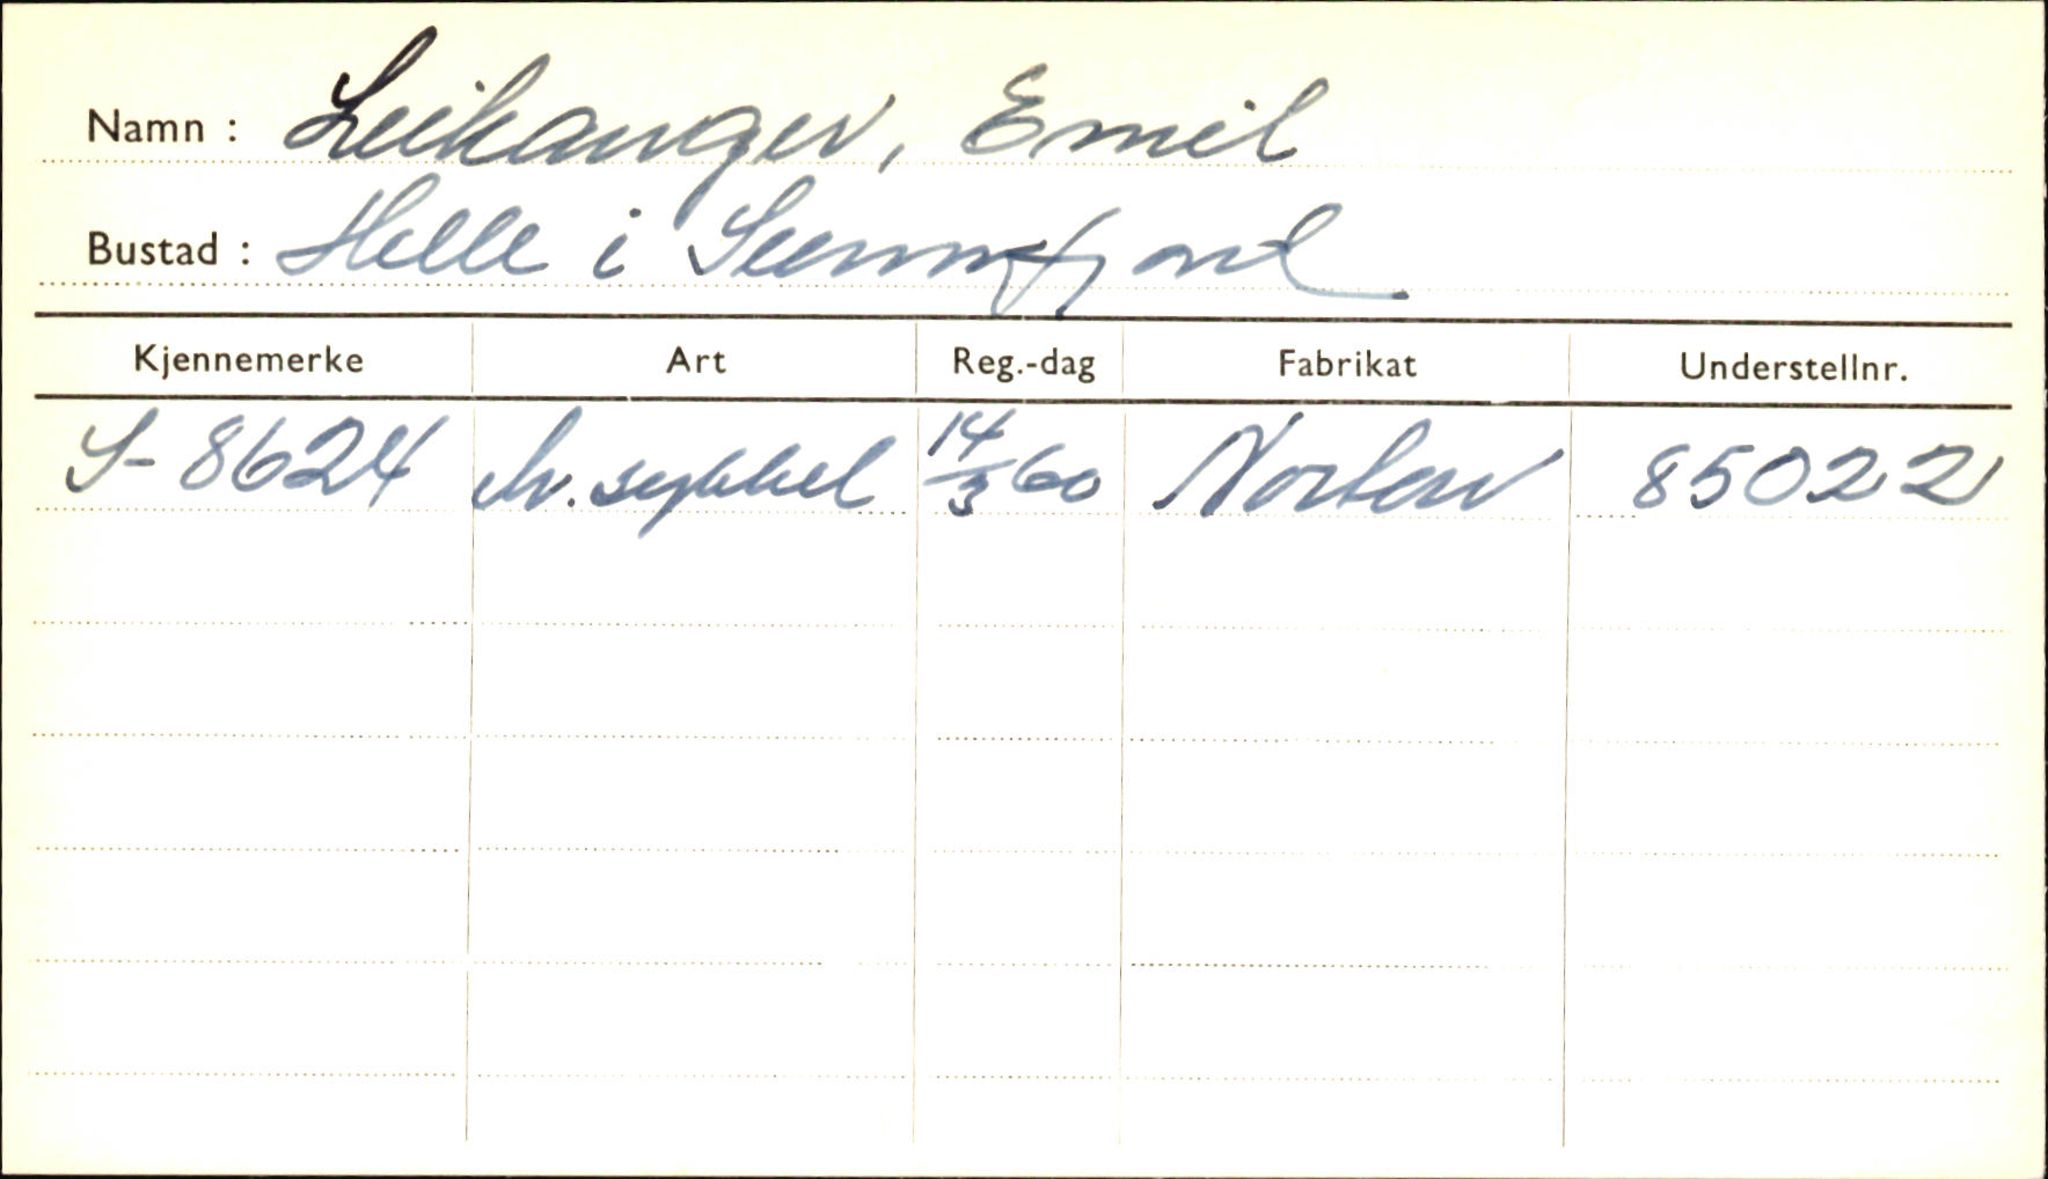 Namn : Leikanger, Emil
Bustad : Helle i Sunnfjord
Kjennemerke Art Reg.-dag Fabrikat Understellnr.
S-8624 M.sykkel 14/3 60 Norton 85022